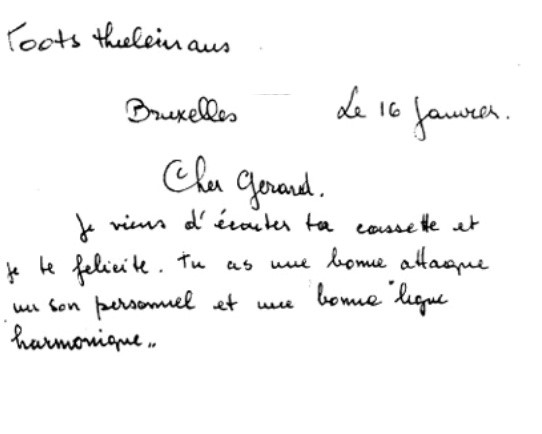 Toots thieleimans
Bruxelles Le 16 Janvier.
Cher Gerard.
Je viens d'écouter ta cassette et
je te felicite. Tu as une bonne attaque
un son personnel et une bonne "ligne
harmonique"